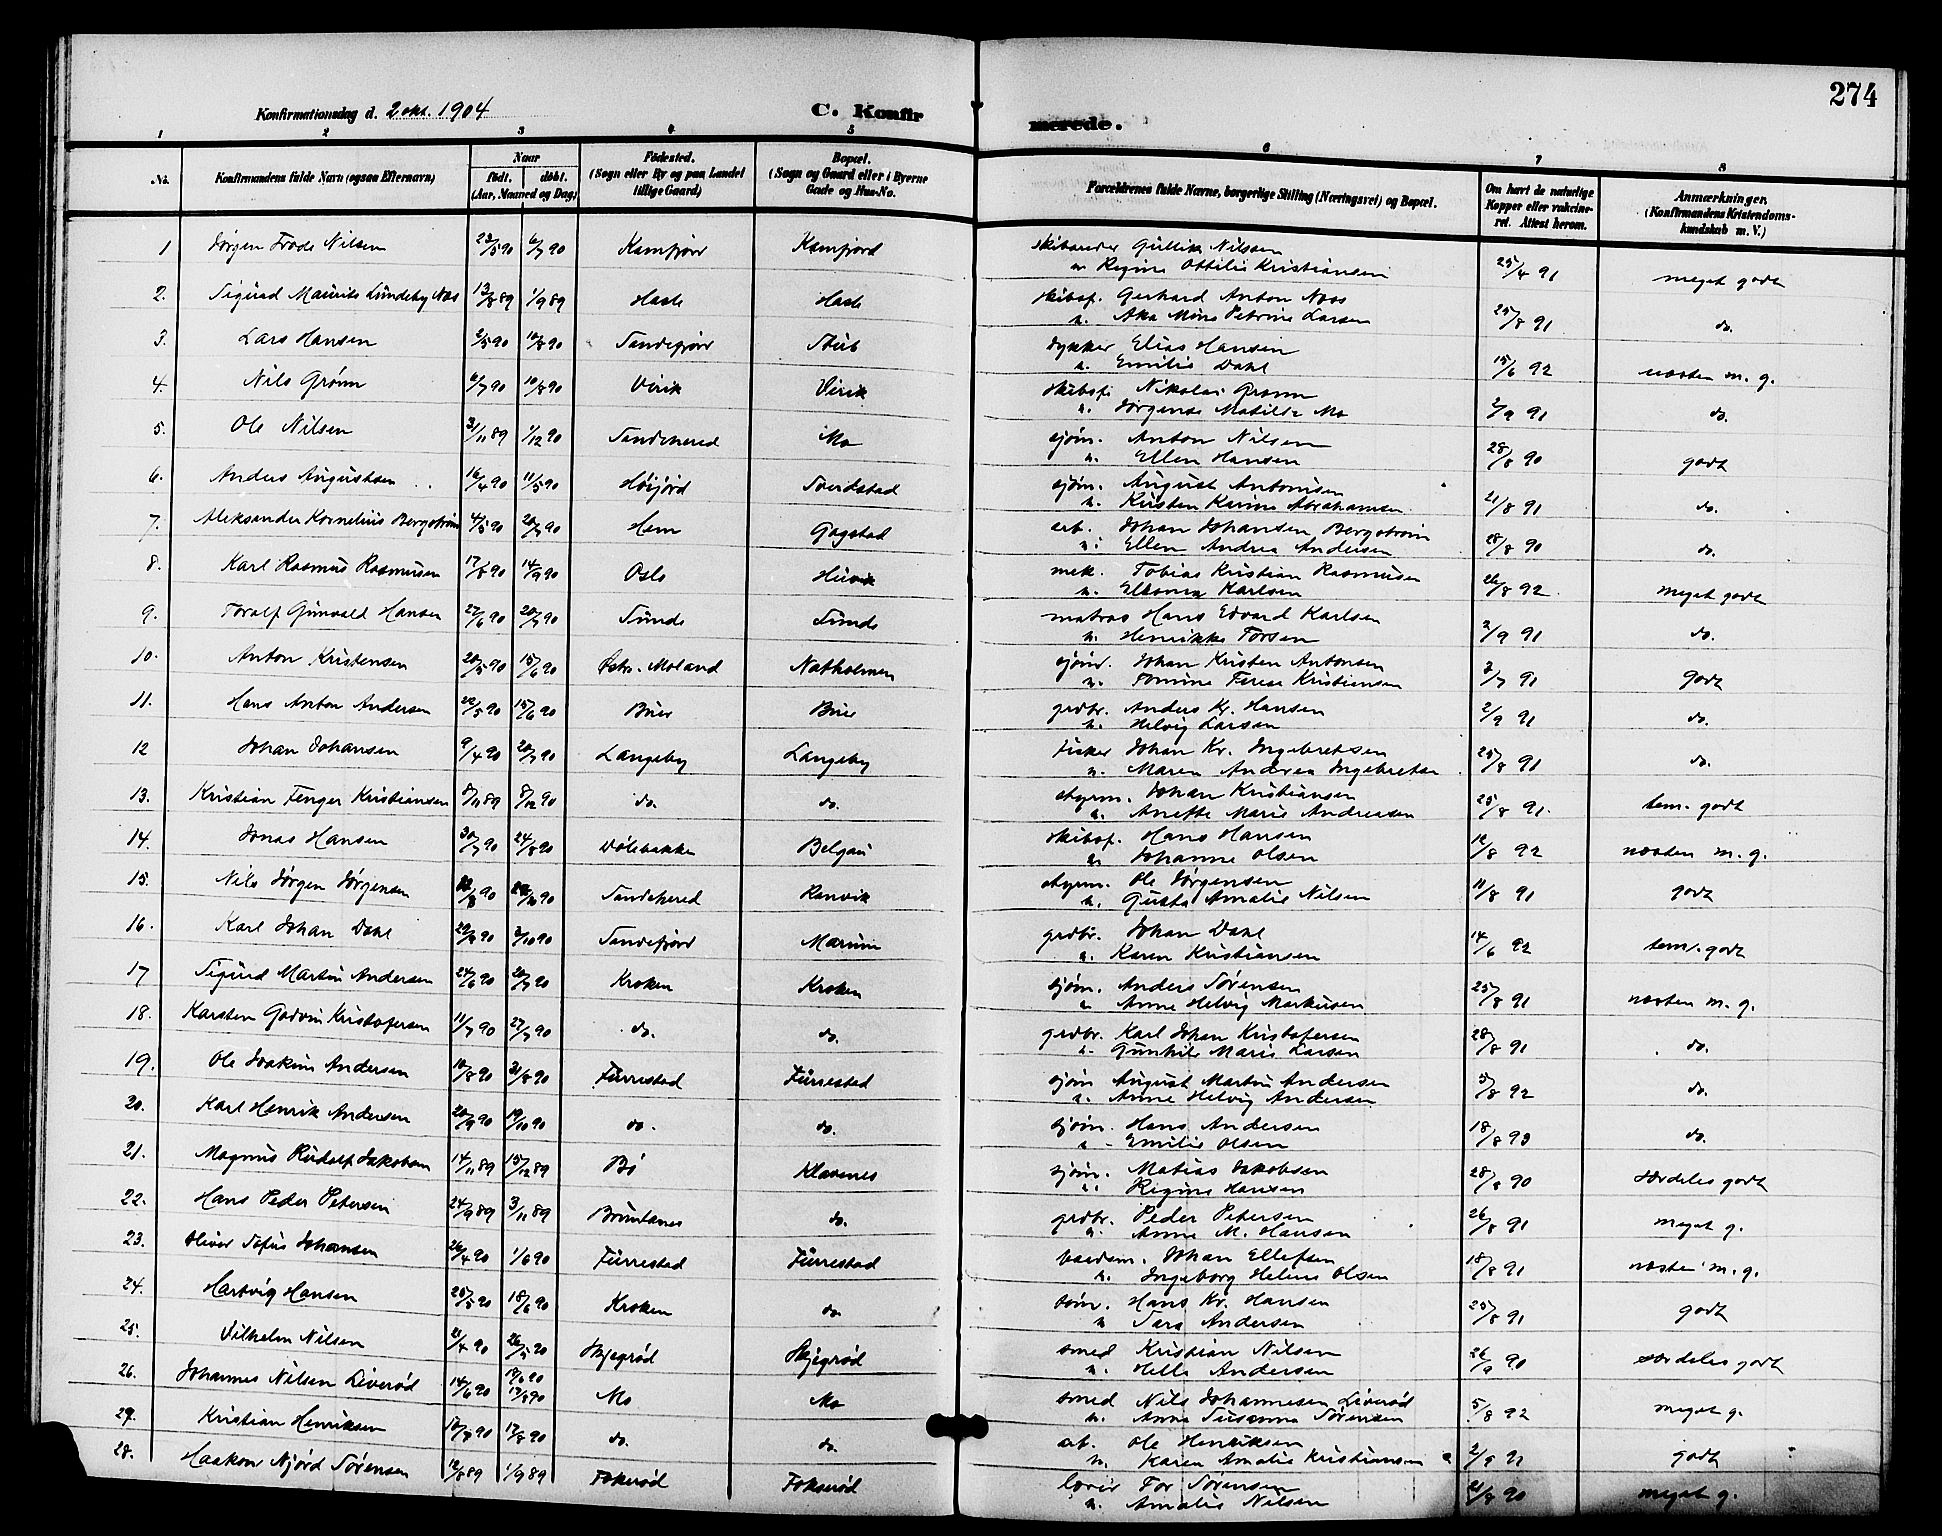 274
Konfirmationsdag d. 2 okt. 1904
C. Konfirmerede.
1 2 3 4 5 6 7 8
No. Konfirmandens fulde Navn (ogsaa Efternavn) Naar født. døbt. (Aar, Maaned og Dag) Fødested. (Sogn eller By og paa Landet tillige Gaard) Bopæl. (Sogn og Gaard eller i Byerne Gade og Hus-No. Forældrenes fulde Navne, borgerlige Stilling (Næringsvei) og Bopæl. Om havt de naturlige Kopper eller vakcineret. Attest herom. Anmærkninger. (Konfirmandens Kristendomskundskab m. V.)
1 Jørgen Frode Nilsen 23/5 90 6/7 90 Kamfjord Kamfjord Gullik Nilsen
Regine Ottilie Kristiansen 25/4 91 meget godt
2. Sigurd Maurits Lundeby Næs 13/8 89 1/9 89 Hasle Hasle skibsf. Gerhard Anton Næs
Petrine Larsen 25/8 91 do.
3. Lars Hansen 2/5 90 10/8 90 Sandefjord Stub dykker Elias Hansen
Emilie Dahl 15/6 92 næsten m. g.
4. Nils Grønn 6/7 90 10/8 90 Virik Virik skibsf. Nikolai Grønn
Jørgense Matilde Mo 2/9 91 do.
5. Ole Nilsen 21/11 89 1/12 90 Sandeherred Mo sjøm. Anton Nilsen
Ellen Hansen 28/8 90 godt
6. Anders Augustsen 16/4 90 11/5 90 Høijord Tveitstad sjøm. August Antonsen
Kristen Karine Abrahamsen 21/8 91 do.
7. Aleksander Kornelius Bergstrøm 4/5 90 20/7 90 Hem Gogstad arb. Johan Johansen Bergstrøm
Ellen Andrea Andersen 28/8 90 do.
8. Karl Rasmus Rasmusen 17/8 90 14/9 90 Oslo Huvik mek. Tobias Kristian Rasmusen
Karlsen 26/8 92 meget godt
9. Toralf Gunvald Hansen 27/6 90 20/7 90 Sunde Sunde matros Hans Edvard Karlsen
Henrikke Torsen 2/9 91 do.
10. Anton Kristensen 20/5 90 15/6 90 Østr. Moland Natholmen sjøm. Johan Kristen Antonsen
Tomine Terese Kristiansen 3/7 91 godt
11. Hans Anton Andersen 22/5 90 15/6 90 Buer Buer grdbr. Anders Kr. Hansen
Helvig Larsen 2/9 91 do.
12 Johan Johansen 9/4 90 20/7 90 Langeby Langeby fisker Johan Kr. Ingebretsen
Maren Andrea Ingebretsen 25/8 91 do.
13. Kristian Fenger Kristiansen 8/11 89 8/12 90 do. do. styrm. Johan Kristiansen
Anette Marie Andreasen 25/8 91. tem. godt
14. Jonas Hansen 30/7 90 24/8 90 Dølebakken Belgau skibsf. Hans Hansen
Johanne Olsen 12/8 92 næsten m. g.
15. Nils Jørgen Jørgensen Sandeherred Ranvik styrm. Ole Jørgensen
Gusta Amalie Nilsen 11/8 91 godt
16. Karl Johan Dahl 22/8 90 2/10 90 Sandefjord Marum grdbr. Johan Dahl
Karen Kristiansen 14/6 92 tem. godt
17 Sigurd Martin Andersen 24/6 90 20/7 90 Kroken Kroken sjøm. Anders Sørensen
Anne Helvig Markusen 25/8 91 næsten m. g.
18. Karsten Godvin Kristofersen 11/7 90 27/7 90 do. do. grdbr. Karl Johan Kristofersen
Gunhild Marie Larsen 28/8 91 do.
19. Ole Joakim Andersen 10/8 90 31/8 90 Furrestad Furrestad sjøm August Martin Andersen
Anne Helvig Andersen 5/8 92 do.
20. Karl Henrik Andersen 20/9 90 19/10 90 do. do. sjøm. Hans Andersen
Emilie Olsen 18/8 93 do.
21. Magnus Rudolf Jakobsen 14/11 89 15/12 89 Bø Klavenes sjøm. Matias Jakobsen
Regine Hansen 28/8 90 særdeles godt
22. Hans Peder Petersen 24/9 89 3/11 89 Bruntanes do. grdbr. Peder Petersen
Anne M. Hansen 26/8 91 meget g.
23. Oliver Sofus Johansen 26/4 90 1/6 90 Furrestad Furrestad Johan Ellefsen
Ingeborg Helene Olsen 18/8 91 næsten m. g.
24. Hartvig Hansen 25/5 90 18/6 90 Kroken do tøm. Hans Kr. Hansen
Sara Andersen 25/8 91 godt
25. Vilhelm Nilsen 21/4 90 26/5 90 Skjegrød Skjegrød smed Kristian Nilsen
Helle Andersen 26/9 90 særdeles godt
26. Johannes Nilsen Liverød 14/6 90 Mo Mo smed Nils Johannesen Liverød
Anne Susanna Sørensen 5/8 92 meget g.
27. Kristian Henriksen 10/7 90 17/8 90 do. do. arb. Ole Henriksen
Karen Amalie Kristiansen 2/9 91 godt
28. Haakon Njørd Sørensen 12/8 89 1/9 89 Fokserød Fokserød Tor Sørensen
Amalie Nilsen 21/8 90 meget g.